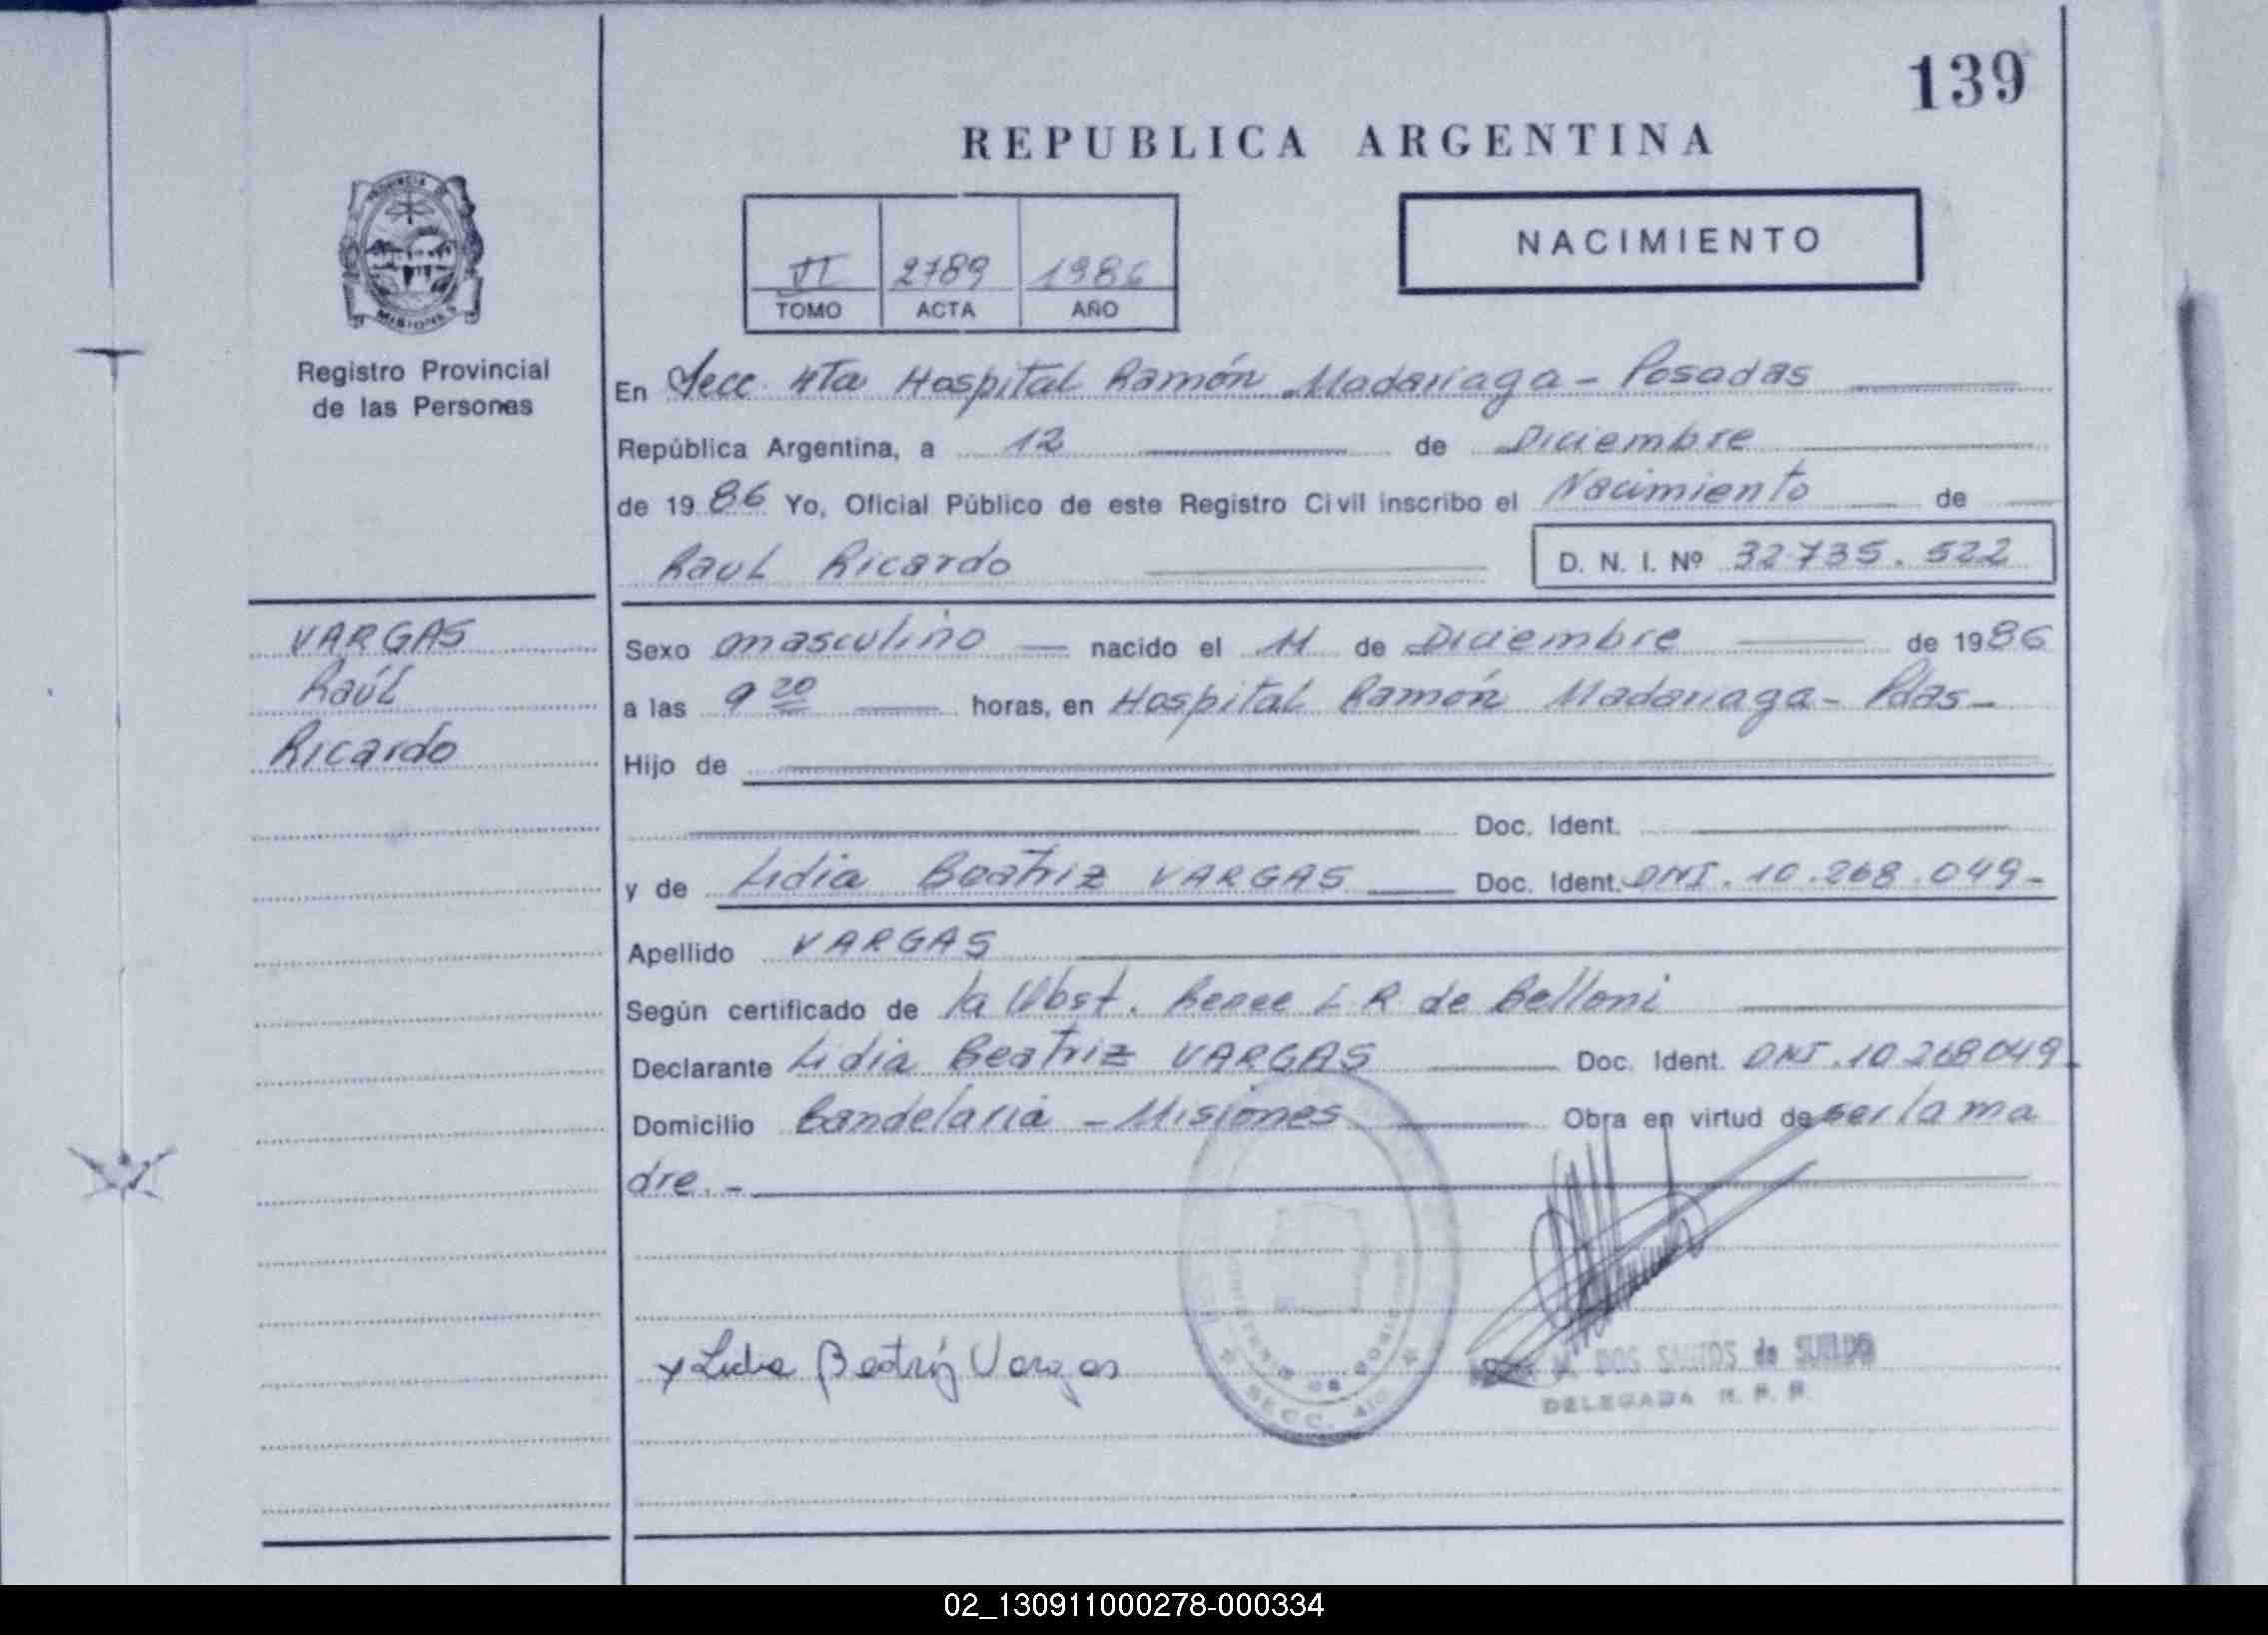 139
REPUBLICA ARGENTINA
PROVINCIA DE
MISIONES
Registro Provincial
de las Personas
VI 2789 1986
TOMO ACTA AÑO
NACIMIENTO
En Secc. 4ta Hospital Ramón Madariaga - Posadas
República Argentina, a 12 de Diciembre
de 1986 Yo, Oficial Público de este Registro Civil inscribo el Nacimiento de
Raul Ricardo D. N. I. Nº 32.735.522
VARGAS
Raúl
Ricardo
Sexo masculino nacido el 11 de Diciembre de 1986
a las 9 20 horas, en Hospital Ramón Madariaga - Pdas -
Hijo de
Doc. Ident.
y de Lidia Beatriz VARGAS Doc. Ident. DNI. 10.268.049-
Apellido VARGAS
Según certificado de la Obst. Renee L R de Belloni
Declarante Lidia Beatriz VARGAS Doc. Ident. DNI. 10.268049-
Domicilio Candelaria - Misiones Obra en virtud de ser la ma
dre. -
x Lidia Beatriz Vargas
SECC. 4ta
DOS SANTOS de SUELDO
DELEGADA R. P. P.
02_130911000278-000334